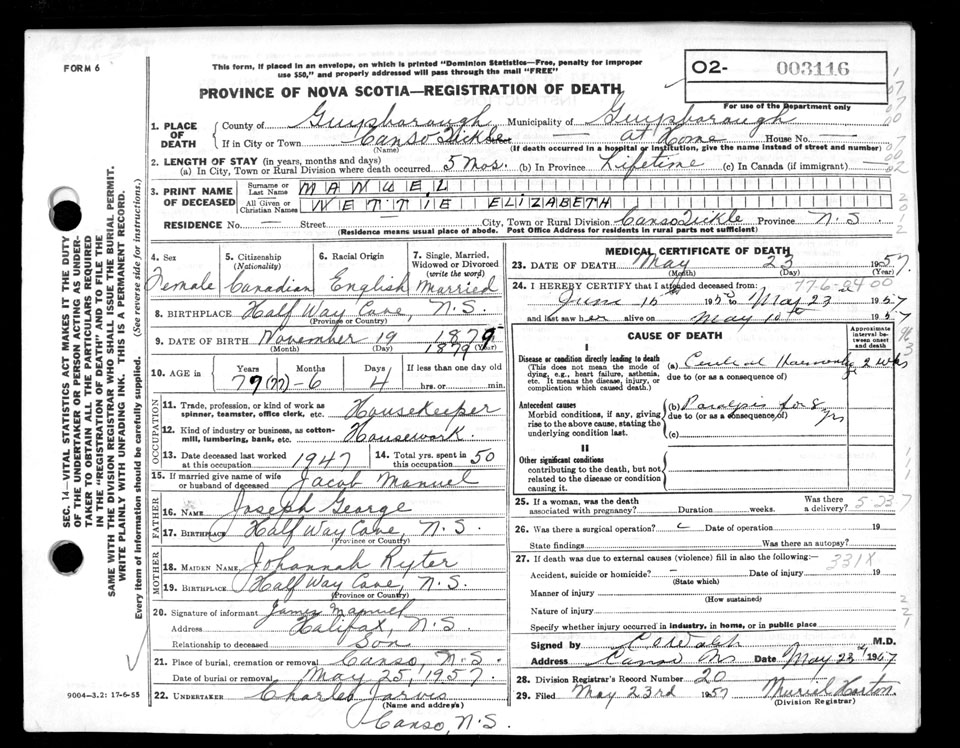 FORM 6
This form, if placed in an envelope, on which is printed "Dominion Statistics—Free, penalty for improper
use $50," and properly addressed will pass through the mail "FREE"
O2- 003116
For use of the Department only
PROVINCE OF NOVA SCOTIA—REGISTRATION OF DEATH
1. PLACE OF DEATH
County of Guysborough Municipality of Guysborough
If in City or Town Canso Tickle at Home House No. —
(Name) (If death occurred in a hospital or institution, give the name instead of street and number)
2. LENGTH OF STAY (in years, months and days)
(a) In City, Town or Rural Division where death occurred 5 mos. (b) In Province Lifetime (c) In Canada (if immigrant) —
3. PRINT NAME OF DECEASED
Surname or Last Name MANUEL
All Given or Christian Names NETTIE ELIZABETH
RESIDENCE No. — Street — City, Town or Rural Division Canso Tickle Province N.S.
(Residence means usual place of abode. Post Office Address for residents in rural parts not sufficient)
4. Sex 5. Citizenship (Nationality) 6. Racial Origin 7. Single, Married, Widowed or Divorced (write the word)
Female Canadian English Married
8. BIRTHPLACE Half Way Cove, N.S.
(Province or Country)
9. DATE OF BIRTH November 19 1879
(Month) (Day) 1879 (Year)
10. AGE in Years Months Days If less than one day old
77 (77) - 6 4 hrs. or min.
OCCUPATION
11. Trade, profession, or kind of work as spinner, teamster, office clerk, etc. Housekeeper
12. Kind of industry or business, as cotton-mill, lumbering, bank, etc. Housework.
13. Date deceased last worked at this occupation 1947 14. Total yrs. spent in this occupation 50
15. If married give name of wife or husband of deceased Jacob Manuel
FATHER
16. NAME Joseph George
17. BIRTHPLACE Half Way Cove, N.S.
(Province or Country)
MOTHER
18. MAIDEN NAME Johannah Ryter
19. BIRTHPLACE Half Way Cove, N.S.
(Province or Country)
20. Signature of informant James Manuel
Address Halifax, N.S.
Relationship to deceased Son
21. Place of burial, cremation or removal Canso, N.S.
Date of burial or removal May 25, 1957
22. UNDERTAKER Charles Jarvis
(Name and address)
Canso, N.S.
9004-3.2: 17-6-55
MEDICAL CERTIFICATE OF DEATH
23. DATE OF DEATH May 23 1957
(Month) (Day) (Year)
24. I HEREBY CERTIFY that I attended deceased from:
77-6-04 00
June 15 195 to May 23 1957
and last saw her alive on May 10th 1957
CAUSE OF DEATH
Approximate interval between onset and death
I
Disease or condition directly leading to death
(This does not mean the mode of dying, e.g., heart failure, asthenia, etc. It means the disease, injury, or complication which caused death.)
(a) Cerebral Hemorrhage 2 wks
due to (or as a consequence of)
Antecedent causes
Morbid conditions, if any, giving rise to the above cause, stating the underlying condition last.
(b) Paralysis for 8 yrs
due to (or as a consequence of)
(c)
II
Other significant conditions
contributing to the death, but not related to the disease or condition causing it.
25. If a woman, was the death associated with pregnancy? Duration weeks. Was there a delivery? 5-23-7
26. Was there a surgical operation? Date of operation 19
State findings Was there an autopsy?
27. If death was due to external causes (violence) fill in also the following:— 331X
Accident, suicide or homicide? — Date of injury 19
(State which)
Manner of injury
(How sustained)
Nature of injury
Specify whether injury occurred in industry, in home, or in public place
Signed by M.D.
Address Canso NS Date May 23 1957
28. Division Registrar's Record Number 20
29. Filed May 23rd 1957 Muriel Horton
(Division Registrar)
SEC. 14—VITAL STATISTICS ACT MAKES IT THE DUTY
OF THE UNDERTAKER OR PERSON ACTING AS UNDER-
TAKER TO OBTAIN ALL THE PARTICULARS REQUIRED
IN THE "REGISTRATION OF DEATH" AND TO FILE THE
SAME WITH THE DIVISION REGISTRAR WHO SHALL ISSUE THE BURIAL PERMIT.
WRITE PLAINLY WITH UNFADING INK. THIS IS A PERMANENT RECORD.
Every item of information should be carefully supplied. (See reverse side for instructions.)